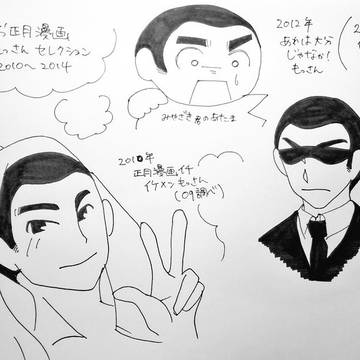 お正月漫画
もっさん セレクション
2010〜2014
みやざき君のあたま
2012年
あれは大分
じゃなかな！
もっさん
2010年
正月漫画イチ
イケメンもっさん
(09調べ)